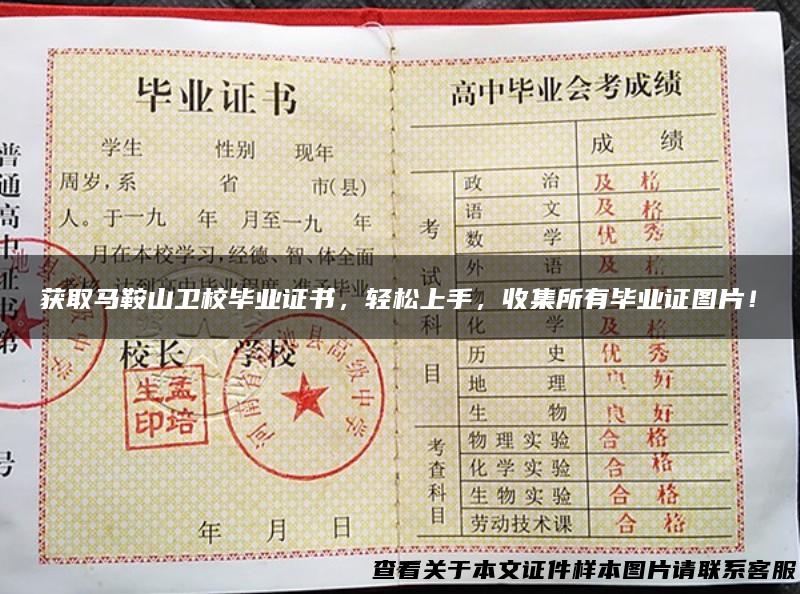 毕业证书
学生 性别 现年
周岁,系 省 市(县)
人。于一九 年 月至一九 年
月在本校学习,经德、智、体全面
校长 学校
生孟
印培
河南省 池县高级中学
年 月 日
高中毕业会考成绩
成 绩
考试科目
政 治 及 格
语 文 及 格
数 学 优 秀
外 语
化 学 及 格
历 史 优 秀
地 理 良 好
生 物 良 好
考查科目
物理实验 合 格
化学实验 合 格
生物实验 合 格
劳动技术课 合 格
普通高中证书第
号
获取马鞍山卫校毕业证书，轻松上手，收集所有毕业证图片！
查看关于本文证件样本图片请联系客服